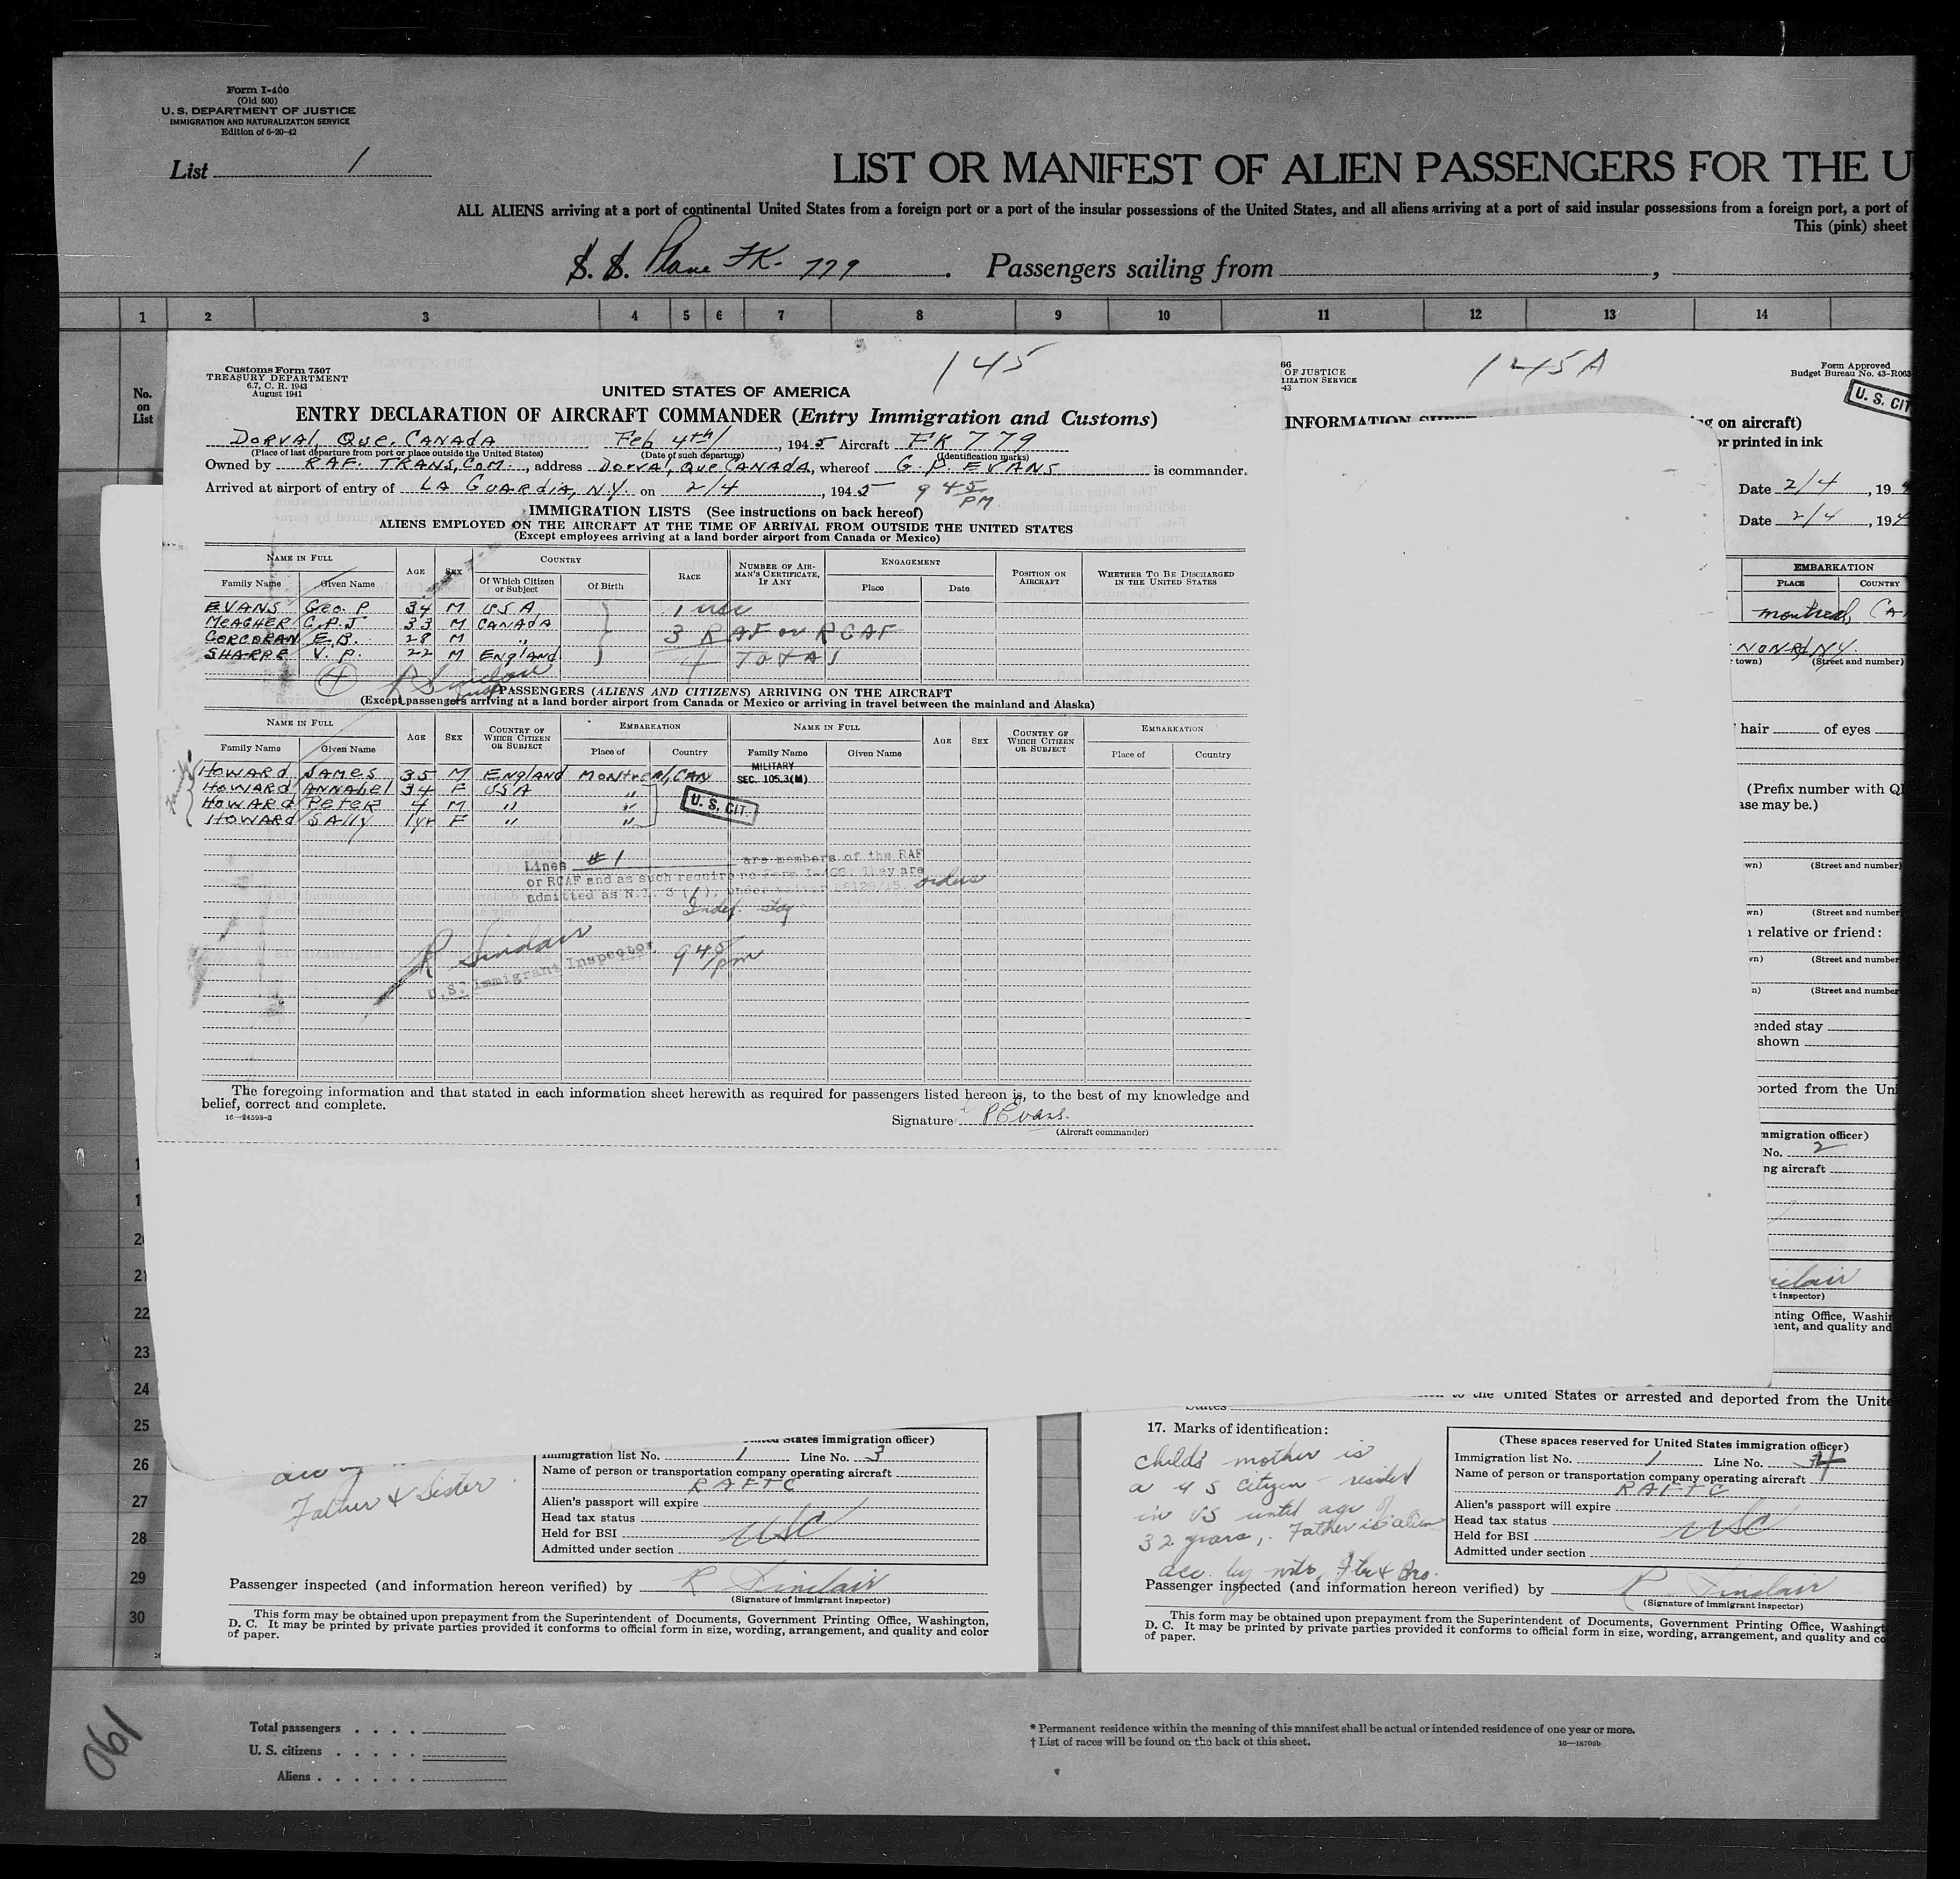 Form I-400
(Old 500)
U. S. DEPARTMENT OF JUSTICE
IMMIGRATION AND NATURALIZATION SERVICE
Edition of 6-20-42
List 1
LIST OR MANIFEST OF ALIEN PASSENGERS FOR THE U
ALL ALIENS arriving at a port of continental United States from a foreign port or a port of the insular possessions of the United States, and all aliens arriving at a port of said insular possessions from a foreign port, a port of
This (pink) sheet
S. S. Plane FK- 779 . Passengers sailing from , 
1 2 3 4 5 6 7 8 9 10 11 12 13 14
No. on List
Customs Form 7507
TREASURY DEPARTMENT
6.7, C. R. 1943
August 1941
145
UNITED STATES OF AMERICA
ENTRY DECLARATION OF AIRCRAFT COMMANDER (Entry Immigration and Customs)
DORVAL, QUE. CANADA Feb 4th, 1945 Aircraft FK 779
(Place of last departure from port or place outside the United States) (Date of such departure) (Identification marks)
Owned by RAF. TRANS, COM. , address DORVAL, QUE CANADA, whereof G. P. EVANS is commander.
Arrived at airport of entry of LA GUARDIA, N.Y. on 2/4 , 1945 9 45 PM
IMMIGRATION LISTS (See instructions on back hereof)
ALIENS EMPLOYED ON THE AIRCRAFT AT THE TIME OF ARRIVAL FROM OUTSIDE THE UNITED STATES
(Except employees arriving at a land border airport from Canada or Mexico)
NAME IN FULL AGE SEX COUNTRY RACE NUMBER OF AIRMAN'S CERTIFICATE, IF ANY ENGAGEMENT POSITION ON AIRCRAFT WHETHER TO BE DISCHARGED IN THE UNITED STATES
Family Name Given Name Of Which Citizen or Subject Of Birth Place Date
EVANS Geo. P 34 M USA 1 usc
MEAGHER C.P.J 33 M CANADA
CORCORAN E.B. 28 M " 3 RAF or RCAF
SHARPE V. P. 22 M ENGLAND 4 TOTAL
4 R Sinclair
PASSENGERS (ALIENS AND CITIZENS) ARRIVING ON THE AIRCRAFT
(Except passengers arriving at a land border airport from Canada or Mexico or arriving in travel between the mainland and Alaska)
NAME IN FULL AGE SEX COUNTRY OF WHICH CITIZEN OR SUBJECT EMBARKATION NAME IN FULL AGE SEX COUNTRY OF WHICH CITIZEN OR SUBJECT EMBARKATION
Family Name Given Name Place of Country Family Name Given Name Place of Country
Family
HOWARD JAMES 35 M ENGLAND Montreal, CAN MILITARY SEC. 105.3(M)
HOWARD ANNABEL 34 F USA "
HOWARD Peter 4 M " " U. S. CIT.
HOWARD SALLY 1yr F " "
Lines #1 are members of the RAF
or RCAF and as such require no Form I-466. They are
admitted as N.I. 3 (1), under letter 56128/15. orders
Indef. stay
R Sinclair
U.S. Immigrant Inspector 9 45 pm
The foregoing information and that stated in each information sheet herewith as required for passengers listed hereon is, to the best of my knowledge and
belief, correct and complete.
16—24598-3
Signature P Evans.
(Aircraft commander)
66
OF JUSTICE
LIZATION SERVICE
43
145A
Form Approved
Budget Bureau No. 43-R063
U. S. CIT
INFORMATION SHEET
ng on aircraft)
or printed in ink
Date 2/4 , 19
Date 2/4 , 194
EMBARKATION
PLACE COUNTRY
Montreal, CA
NY.
town) (Street and number)
hair of eyes
(Prefix number with Q
ase may be.)
wn) (Street and number)
wn) (Street and number
relative or friend:
wn) (Street and number
n) (Street and number
ended stay
shown
ported from the Uni
mmigration officer)
No. 2
ng aircraft
nclair
t inspector)
nting Office, Washin
ent, and quality and
to the United States or arrested and deported from the Unite
States
21
22
23
24
25
26
27
28
29
30
Father & Sister
United States immigration officer)
Immigration list No. 1 Line No. 3
Name of person or transportation company operating aircraft
RAFTC
Alien's passport will expire
Head tax status
Held for BSI USC
Admitted under section
Passenger inspected (and information hereon verified) by R Sinclair
(Signature of immigrant inspector)
This form may be obtained upon prepayment from the Superintendent of Documents, Government Printing Office, Washington,
D. C. It may be printed by private parties provided it conforms to official form in size, wording, arrangement, and quality and color
of paper.
17. Marks of identification:
Childs mother is
a US citizen - resided
in US until age of
32 years,. Father is alien
acc. by moth, Fthr & Bro.
(These spaces reserved for United States immigration officer)
Immigration list No. 1 Line No. 4
Name of person or transportation company operating aircraft
RAFTC
Alien's passport will expire
Head tax status
Held for BSI USC
Admitted under section
Passenger inspected (and information hereon verified) by R Sinclair
(Signature of immigrant inspector)
This form may be obtained upon prepayment from the Superintendent of Documents, Government Printing Office, Washingt
D. C. It may be printed by private parties provided it conforms to official form in size, wording, arrangement, and quality and co
of paper.
190
Total passengers . . . .
U. S. citizens . . . . .
Aliens . . . . . .
* Permanent residence within the meaning of this manifest shall be actual or intended residence of one year or more.
† List of races will be found on the back of this sheet.
16—18709b